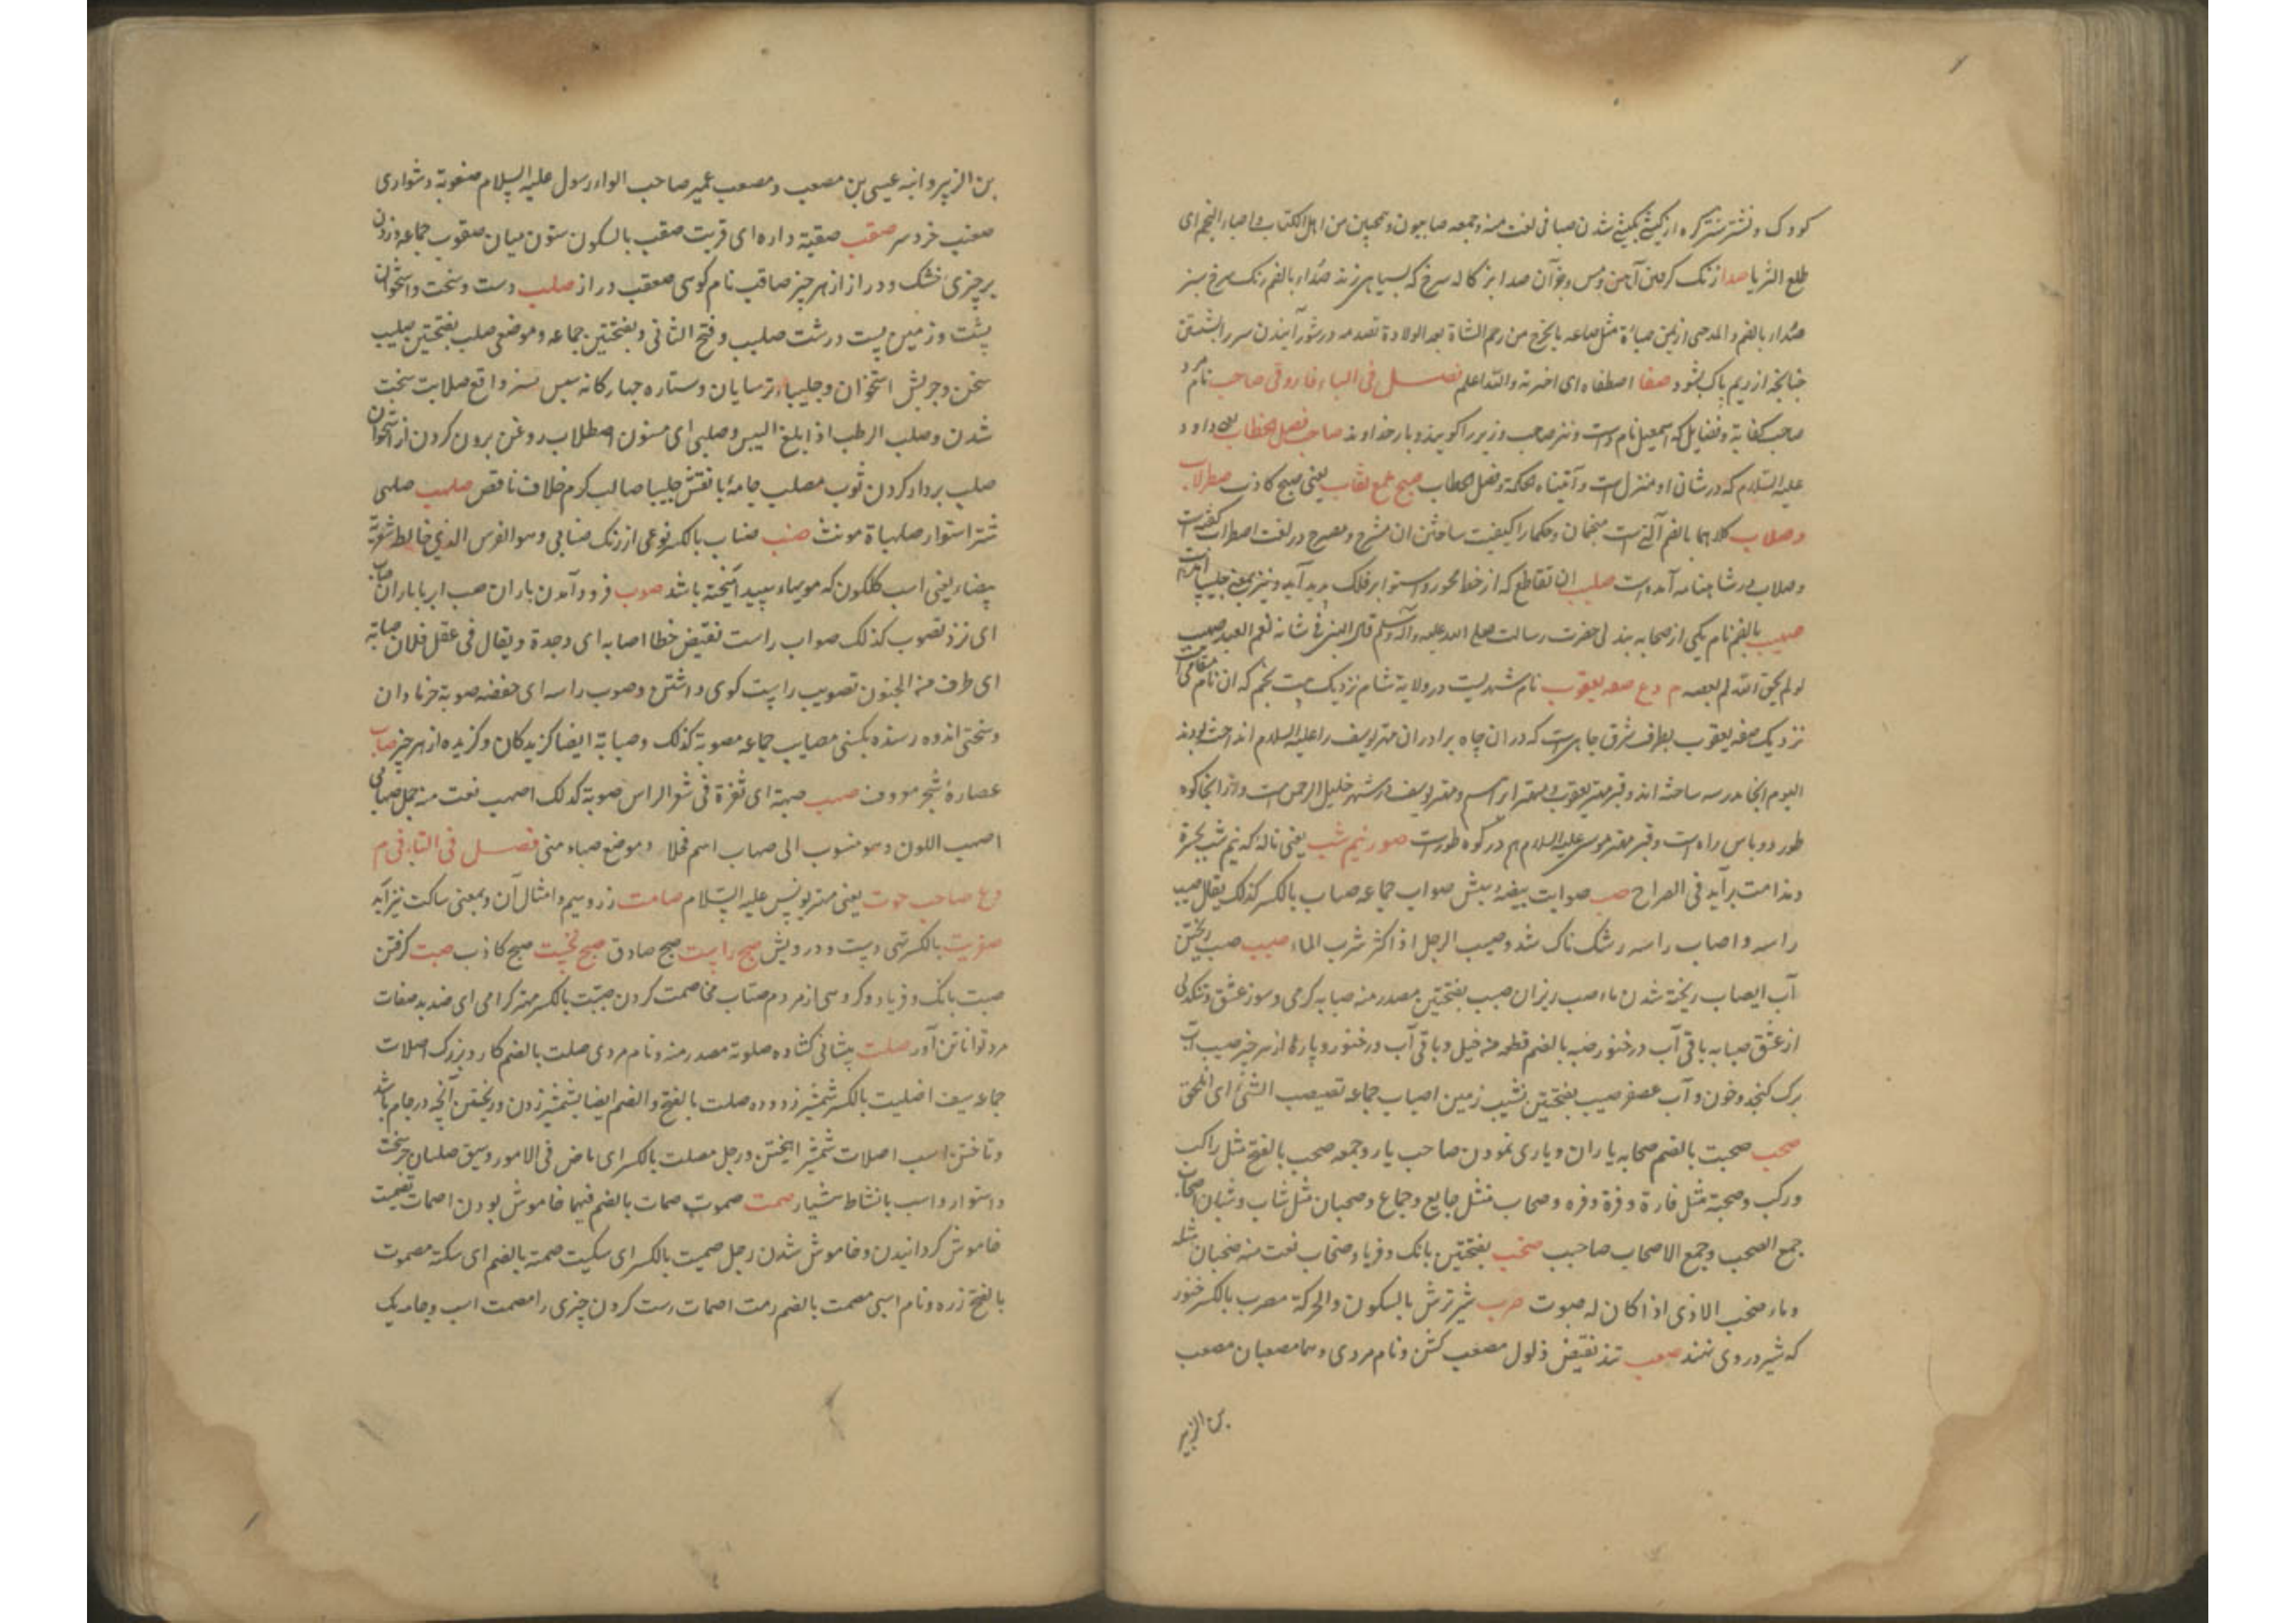 طلع الثریا صدا زنک کرفتن آهن ومس وجز آن
صداء بالضم والمد
صفا اصطفاه ای اختره والله اعلم فصل فی الباء فاروقی صاحب نام مرد
صاحب کفایة وفضایل که اسمعیل نام داشت ونیز صاحب وزیر را کویند وبار خداوند صاحب فصل الخطاب یعنی داود
علیه السلام که در شان او منزل است وآتیناه الحکمة وفصل الخطاب صبح ملمع نقاب یعنی صبح کاذب صطرلاب
وصلاب کلاهما بالضم آلتی است منجمان وحکما را کیفیت ساختن ان مشرح ومصرح در لغت اصطرلاب گفته است
وصلاب در شاهنامه آمده است صلیب ان تقاطع که از خط محور واستوا بر فلک پدید آید ونیز بمعنی چلیپا
صهیب بالضم نام یکی از صحابه حضرت رسالت صلی الله علیه وآله وسلم قال النبی فی شانه نعم العبد صهیب
لو لم یخف الله لم یعصه م وع صفه یعقوب نام شهریست در ولایة شام نزدیک
نزدیک صفه یعقوب بطرف شرق چاهی است که در ان چاه برادران مهتر یوسف را علیه السلام انداخته بودند
الیوم انجا مدرسه ساخته اند وقبر مهتر یعقوب ومهتر ابراهیم ومهتر یوسف در شهر خلیل الرحمن است واز انجا کوه
طور دو پاس راه است وقبر مهتر موسی علیه السلام هم در کوه طور است صور نیم شب یعنی ناله که نیم شب
وندامت بر آید فی الصراح صب صوابة بیضه وبیش صواب جماعه صباب بالکسر کذلک یقال صیب
راسه واصاب راسه رشک ناک شد وصیب الرجل اذا اکثر شرب الماء صبب صب ریختن
آب ایصاب ریخته شدن ماء صب ریزان صبب بفتحتین مصدر منه صبابه کرمی وسوز عشق وتنکدلی
از عشق صبابه باقی آب در خنور صبه بالضم قطعه من خیل وباقی آب در خنور وپاره از هر چیز صبیب
برک کنجد وخون وآب عصفر صبب بفتحتین نشیب زمین اصباب جماعه تصبصب الشیء ای انمحق
صحب صحبت بالضم صحابه یاران ویاری نمودن صاحب یار وجمعه صحب بالفتح مثل راکب
ورکب وصحبة مثل فارة وفرة وفره وصحاب مثل جایع وجیاع وصحبان مثل شاب وشبان اصحاب
جمع الصحب وجمع الاصحاب صاحیب صخب بفتحتین بانک وفریاد وصخاب نعت منه صخبان مثله
وماء صخب الاذی اذا کان له صوت صرب شیر ترش بالسکون والحرکة مصرب بالکسر خنور
که شیر در وی نهند صعب تند نقیض ذلول مصعب کشن ونام مردی وهما مصعبان مصعب
بن الزبیر
بن الزبیر وابنه عیسی بن مصعب ومصعب عمیر صاحب الواء رسول علیه السلام صعوبة دشواری
صعنب خرد سر صقب صقیبة داره ای قربت صقب بالسکون ستون میان صقوب جماعه وزدن
بر چیزی خشک ودراز از هر چیز صاقب نام کوهی صعقب دراز صلب درست وسخت واستخوان
پشت وزمین پست درشت صلیب وفتح الثانی وبفتحتین جماعه وموضعی صلب بفتحتین صلیب
سخن وچربش استخوان وچلیپاء ترسایان وستاره چهارکانه سپس نسر واقع صلابت سخت
شدن وصلب الرطب اذا بلغ الیبس وصلبی ای مسنون اصطلاب روغن برون کردن از استخوان
صلب بر دار کردن ثوب مصلب جامه با نقش چلیپا صالب کرم خلاف نافض صلهب صلهبی
شتر استوار صلهباة مونث صنب صناب بالکسر نوعی از رنک صنابی وهو الفرس الذی خالط شقرته
بیضاء یعنی اسب کلکون که مویهاء سپید آمیخته باشد صوب فرود آمدن باران صیب ابر با باران
ای نزد تصوب کذلک صواب راست نقیض خطا اصابه ای وجدة ویقال فی عقل فلان صابة
ای طرف من الجنون تصویب راست کوی داشتن وصوب راسه ای خفضه صوبة خرمادان
وسختی اندوه رسنده بکسی مصایب جماعه مصوبة کذلک وصیابة ایضا کزیدکان وکزیده از هر چیز صاب
عصاره شجر معروف صهب صهبة ای شقرة فی شعر الراس صهوبة کذلک اصهب نعت منه جمل صهابی
اصهب اللون وهو منسوب الی صهاب اسم فحل وموضع صهباء می فصل فی التاء فی م
وع صاحب حوت یعنی مهتر یونس علیه السلام صامت زر وسیم وامثال آن وبمعنی ساکت نیز آید
صفریت بالکسر تهی دست ودرویش صبح راست صبح صادق صبح نخست صبح کاذب صبت کرفتن
صیت بانک وفریاد وکروهی از مردم صتات مخاصمت کردن صیت بالکسر مهتر کرامی ای صندید صفات
مرد توانا تن آور صلت پیشانی کشاده صلوتة مصدر منه ونام مردی صلت بالضم کارد بزرک اصلات
جماعه سیف اصلیت بالکسر شمشیر زدوده صلت بالفتح والضم ایضا بشمشیر زدن وریختن آنچه در جام باشد
وتاختن اسب اصلات شمشیر آهیختن ورجل مصلت بالکسر ای ماض فی الامور وسیق صلتان خر سخت
واستوار واسب با نشاط هشیار صمت صموت صمات بالضم فیهما خاموش بودن اصمات تصمیت
خاموش کردانیدن وخاموش شدن رجل صمیت بالکسر ای سکیت صمتة بالضم ای سکتة صموت
بالفتح زره ونام اسپی مصمت بالضم راست اصمات راست کردن چیزی را مصمت اسب وجامه یک